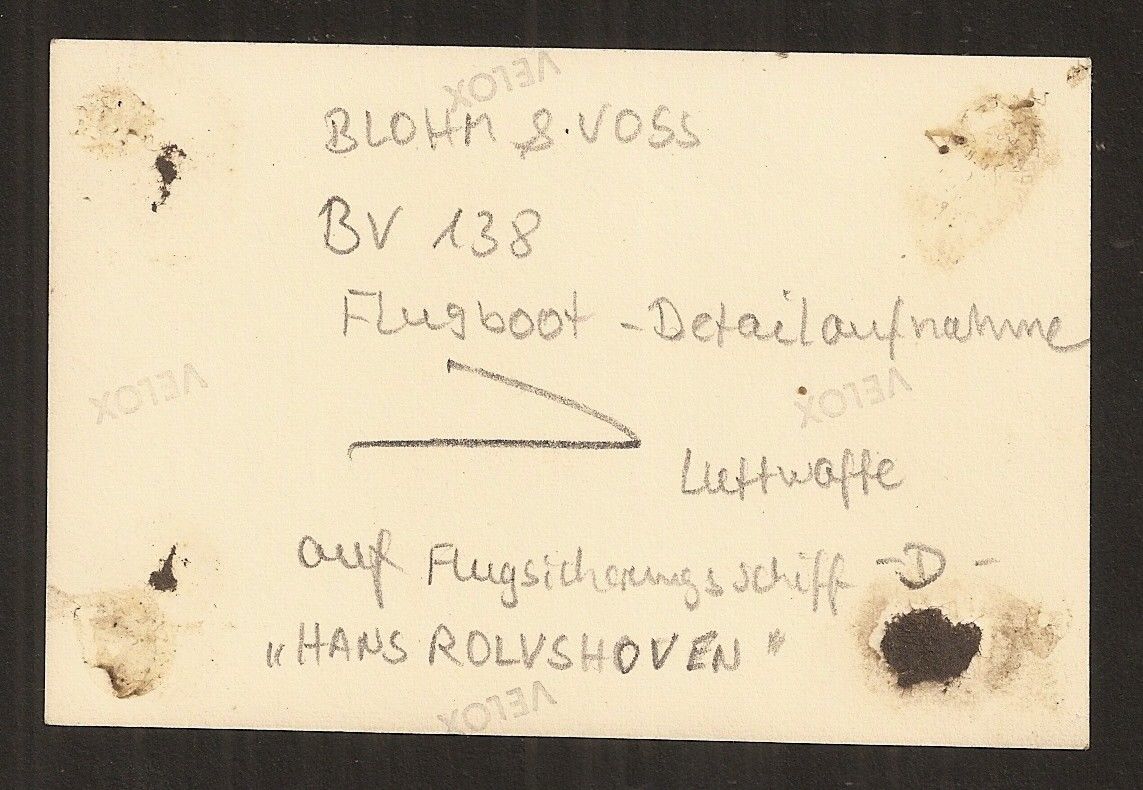 VELOX
BLOHM & VOSS
BV 138
Flugboot - Detailaufnahme
VELOX VELOX
Luftwaffe
auf Flugsicherungsschiff - D -
"HANS ROLVSHOVEN"
VELOX